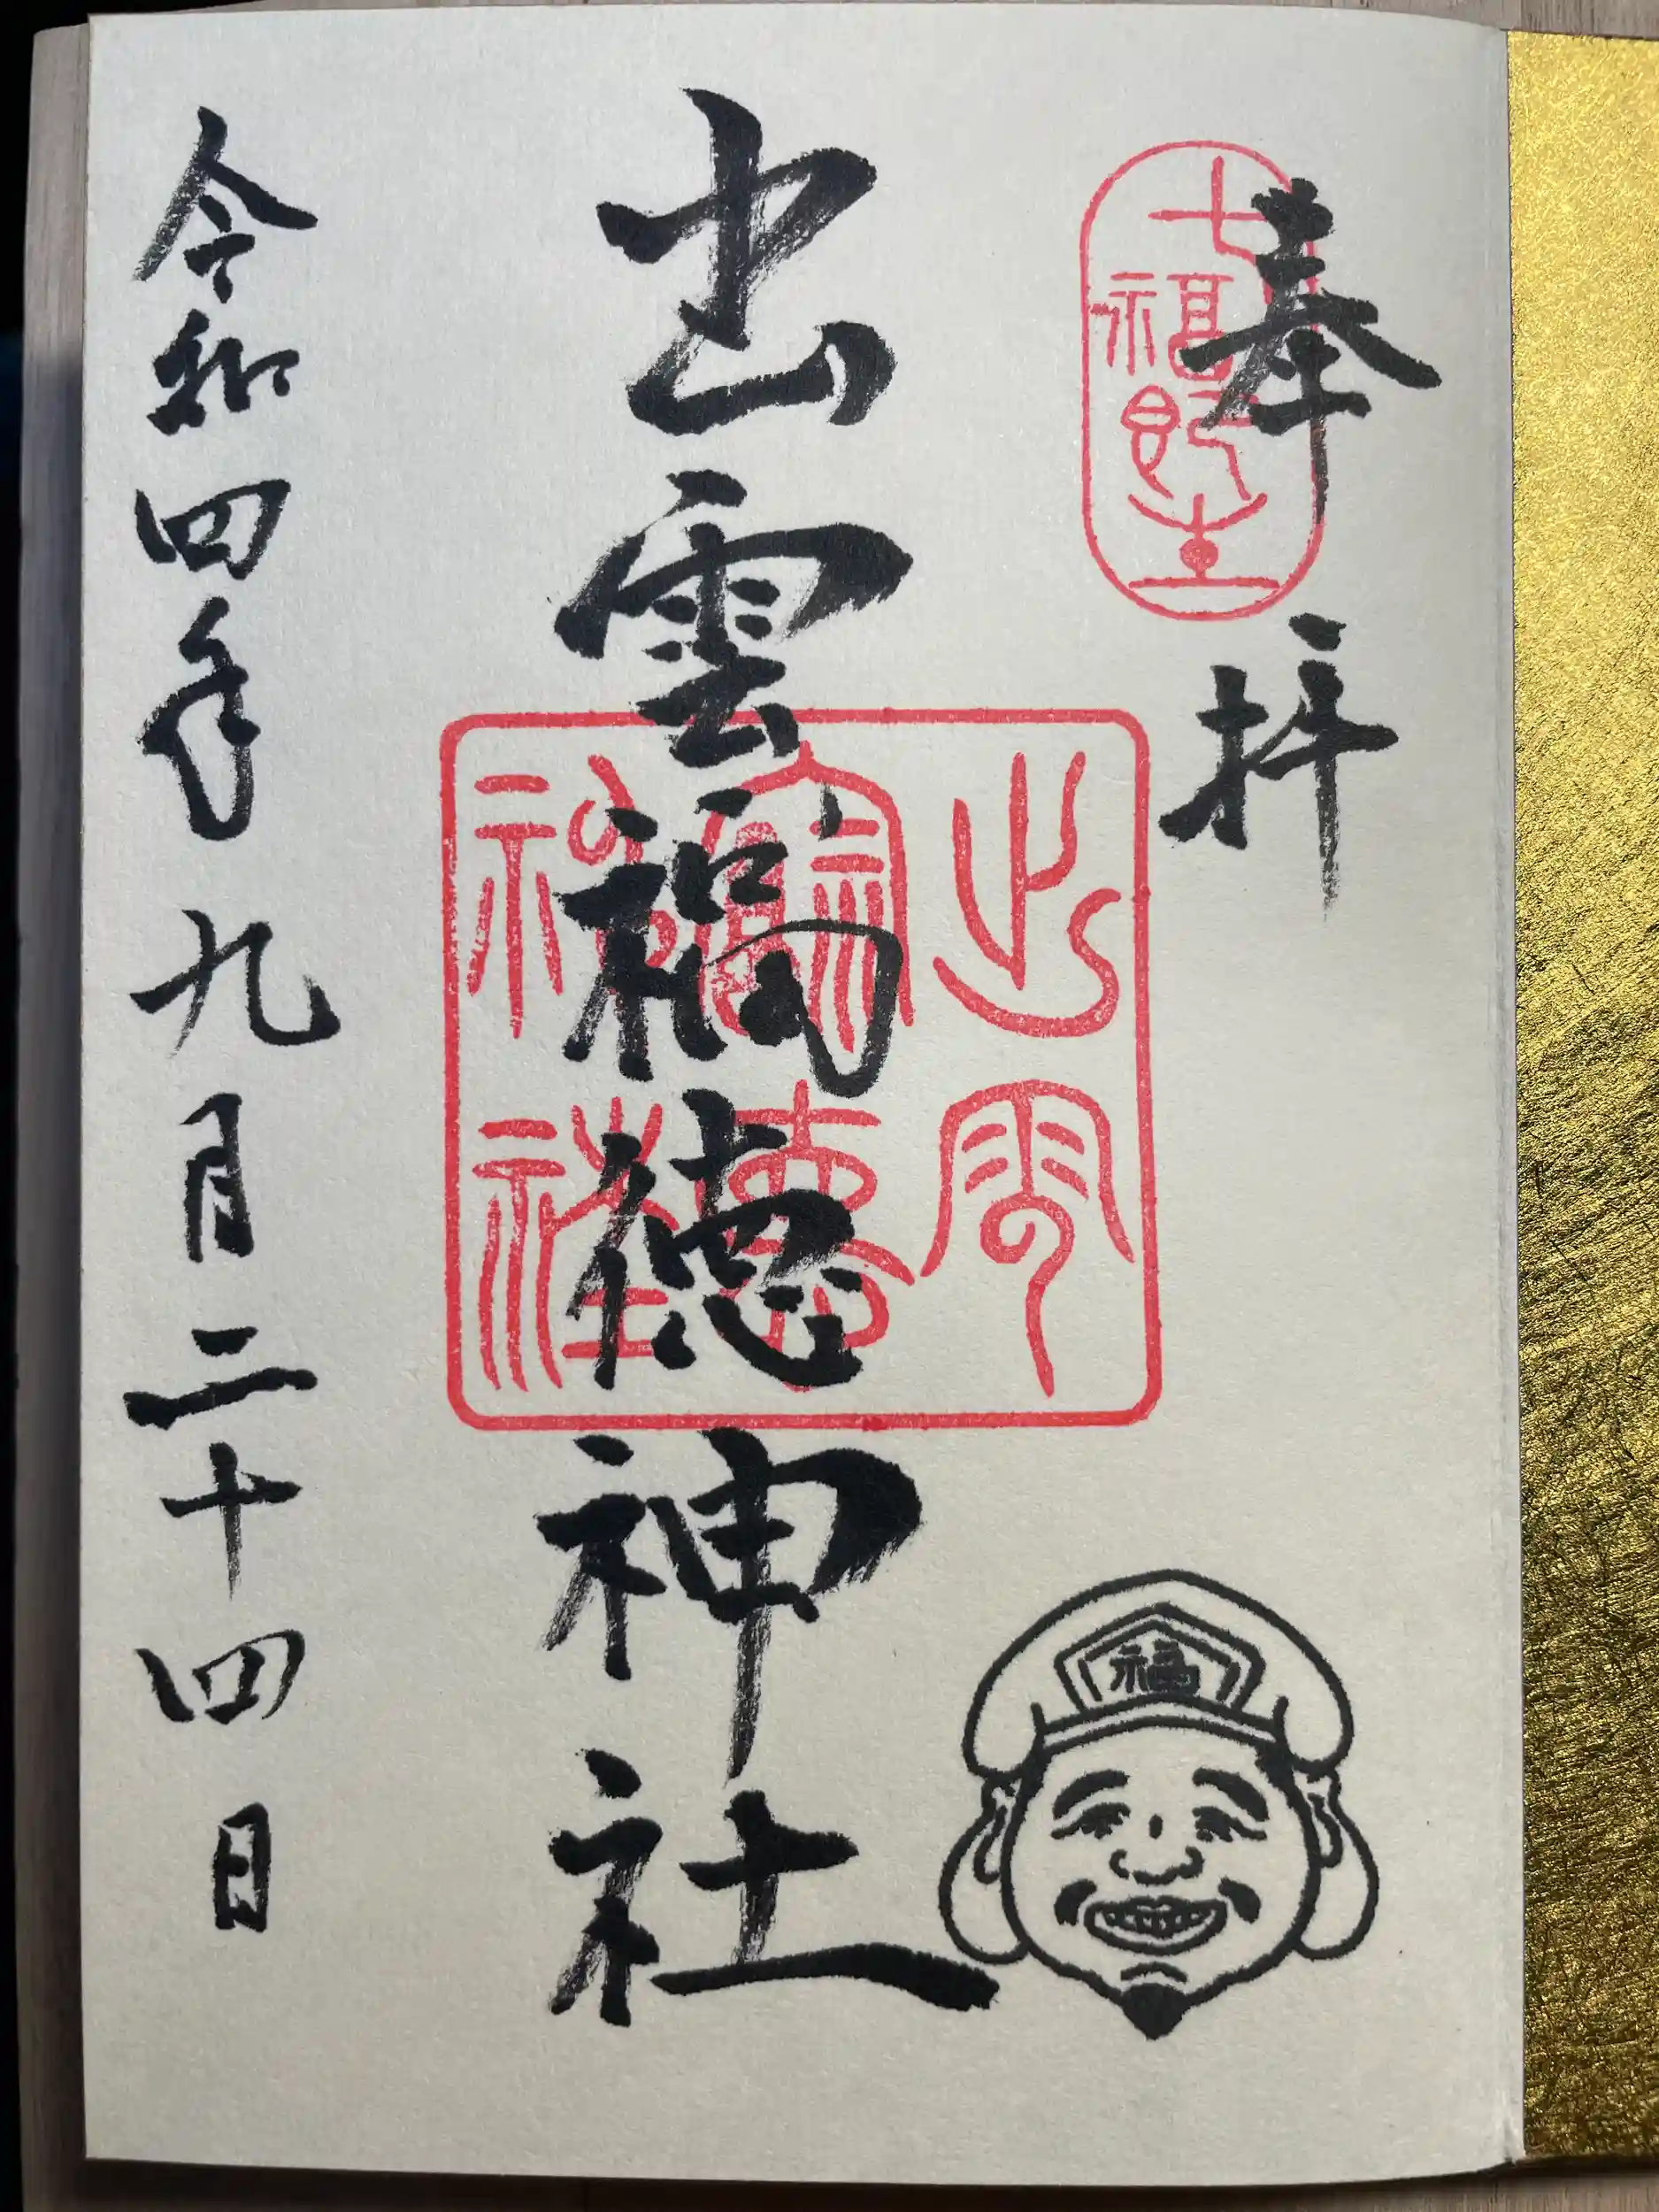 奉拝
七福即生
出雲福徳神社
出雲
福徳
神社
福
令和四年九月二十四日